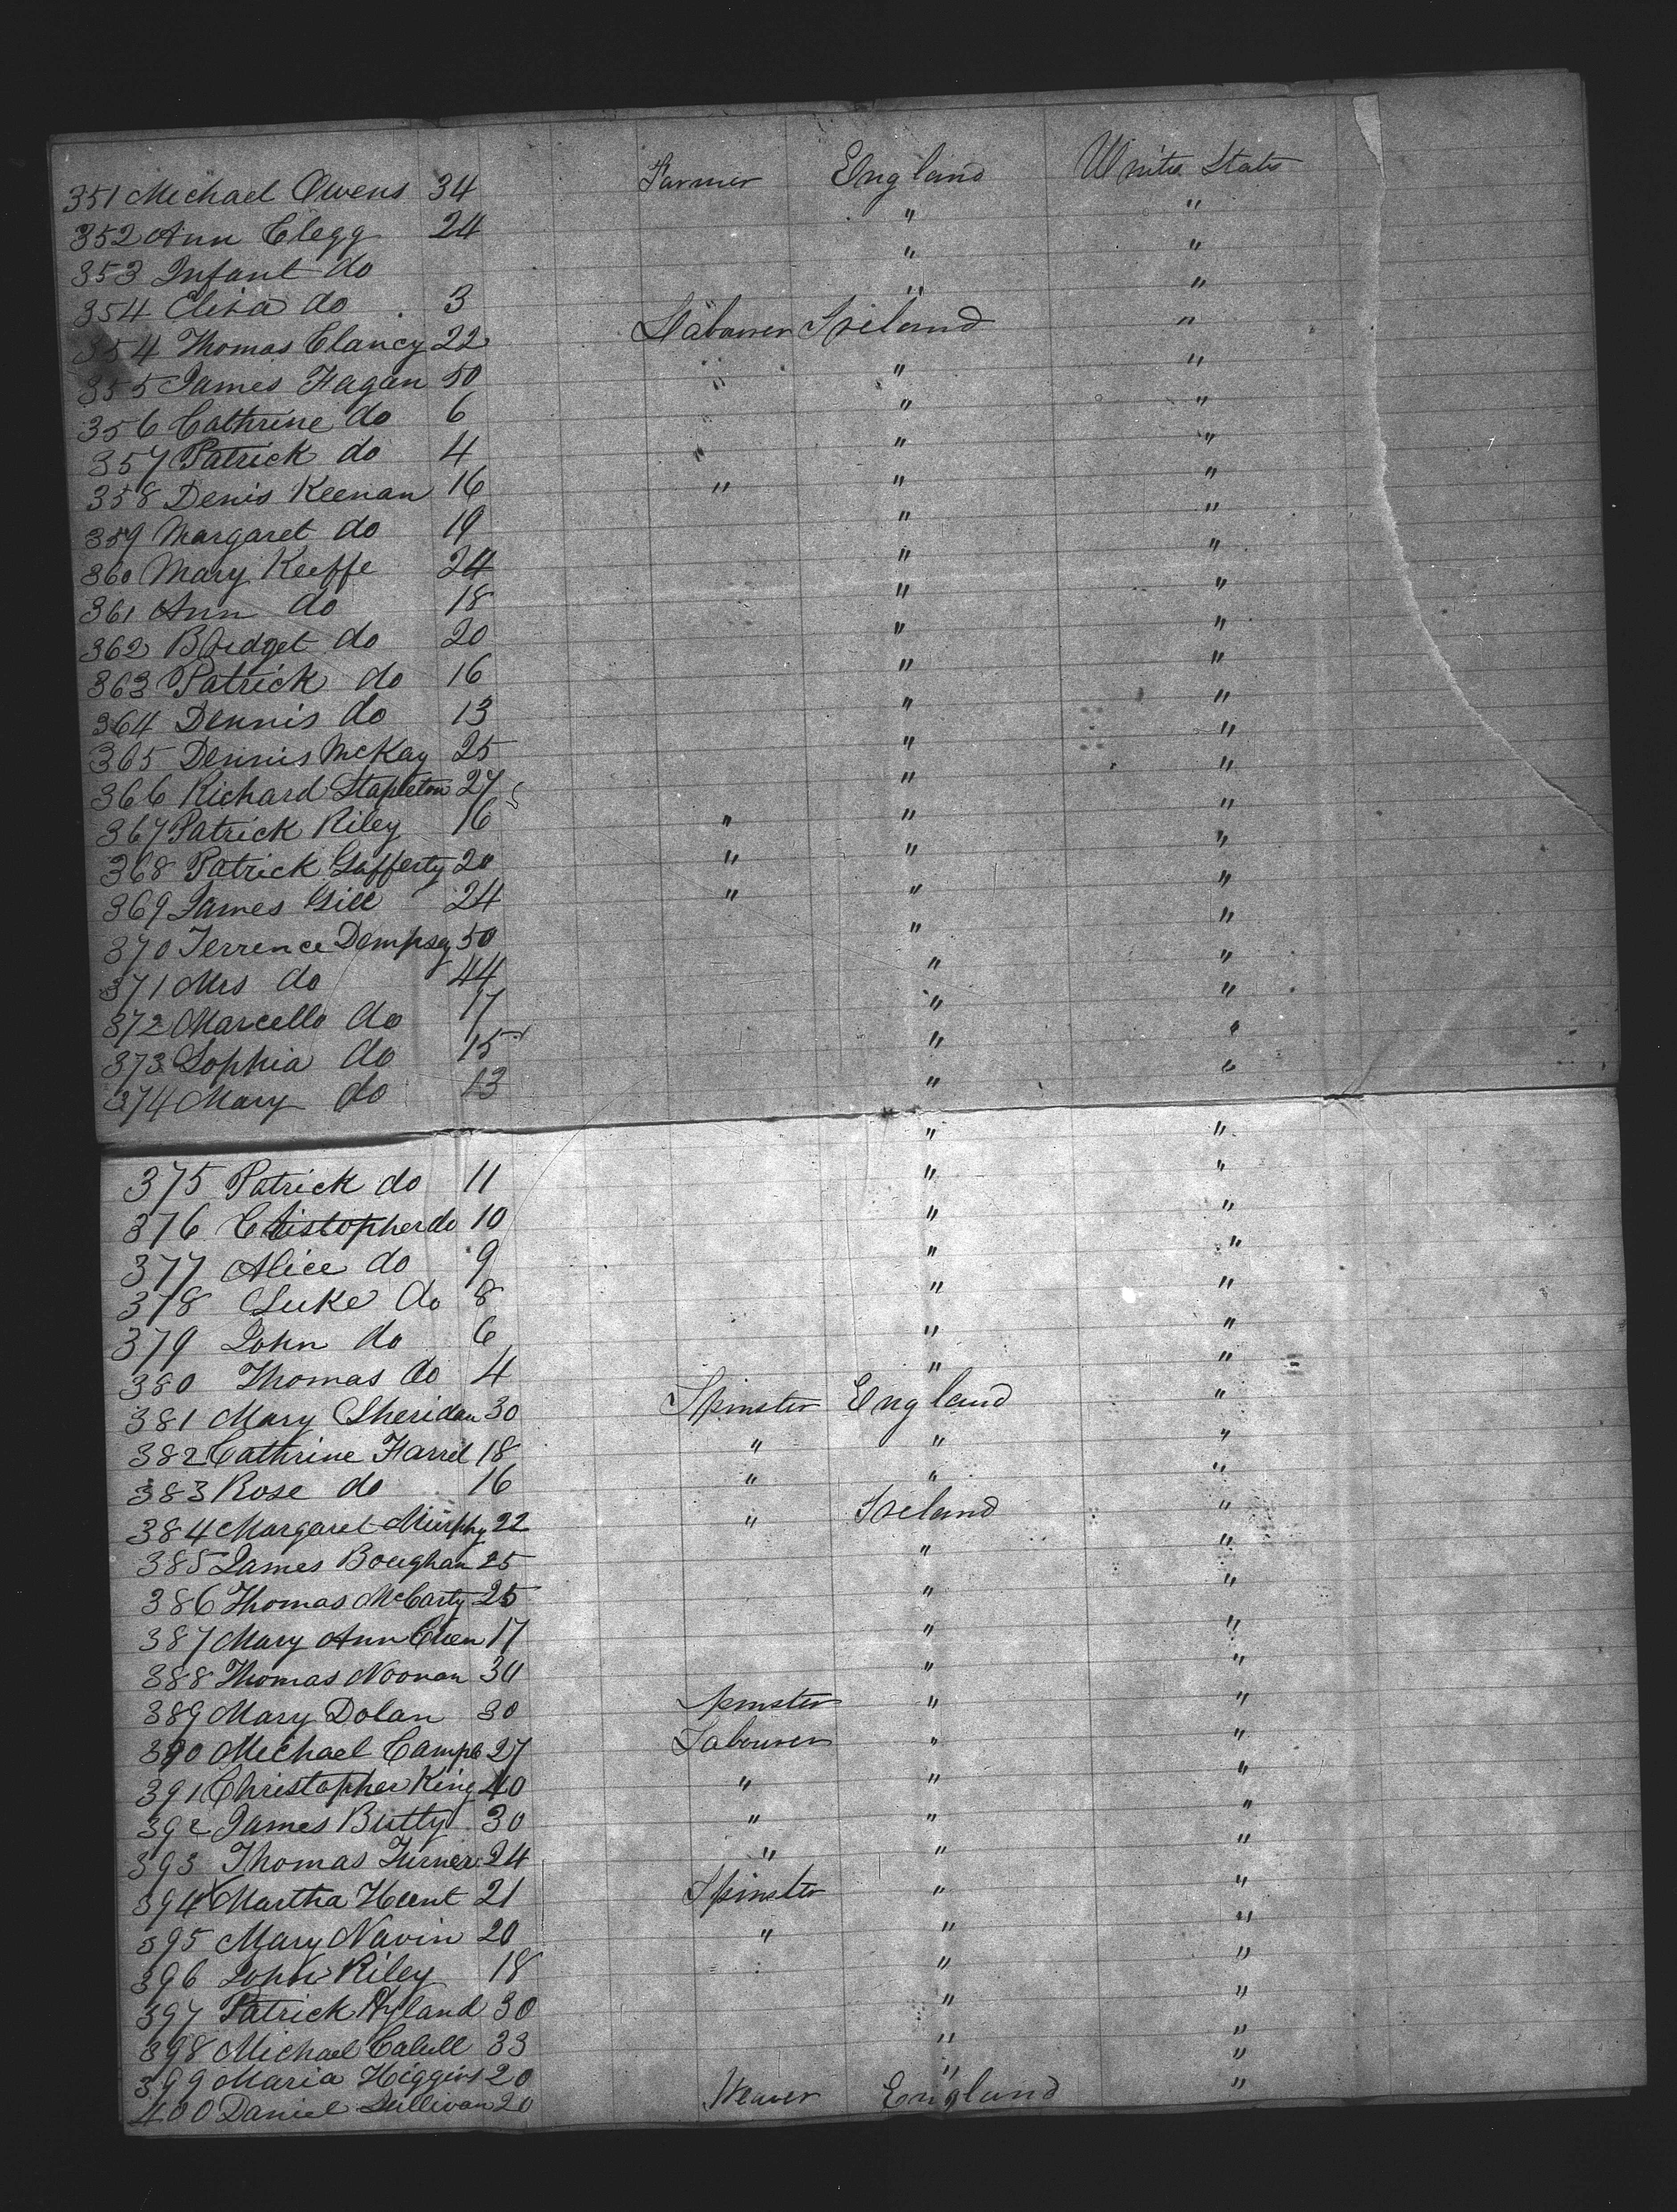 351 Michael Owens 34 Farmer England Unite States
352 Ann Clegg 24 " "
353 Infant do " "
354 Eliza do 3 " "
354 Thomas Clancy 22 Labourer Ireland "
355 James Fagan 50 " " "
356 Cathrine do 6 " "
357 Patrick do 4 " " "
358 Denis Keenan 16 " " "
359 Margaret do 19 " "
360 Mary Keeffe 24 " "
361 Ann do 18 " "
362 Bridget do 20 " "
363 Patrick do 16 " "
364 Dennis do 13 " "
365 Dennis McKay 25 " "
366 Richard Stapleton 27 " "
367 Patrick Riley 16 " " "
368 Patrick Gafferty 20 " " "
369 James Gill 24 " " "
370 Terrence Dempsey 50 " "
371 Mrs do 44 " "
372 Marcello do 17 " "
373 Sophia do 15 " "
374 Mary do 13 " "
375 Patrick do 11 " "
376 Christopher do 10 " "
377 Alice do 9 " "
378 Luke do 8 " "
379 John do 6 " "
380 Thomas do 4 " "
381 Mary Sheridan 30 Spinster England "
382 Cathrine Farrel 18 " " "
383 Rose do 16 " " "
384 Margaret Murphy 22 " Ireland "
385 James Boughan 25 " "
386 Thomas McCarty 25 " "
387 Mary Ann 17 " "
388 Thomas Noonan 30 " "
389 Mary Dolan 30 Spinster " "
390 Michael Campb 27 Labourer " "
391 Christopher King 40 " " "
392 James Butty 30 " " "
393 Thomas Turner 24 " " "
394 Martha Hunt 21 Spinster " "
395 Mary Navin 20 " " "
396 John Riley 18 " "
397 Patrick Ryland 30 " "
398 Michael Cahill 33 " "
399 Maria Higgins 20 " "
400 Daniel Sullivan 20 Weaver England "